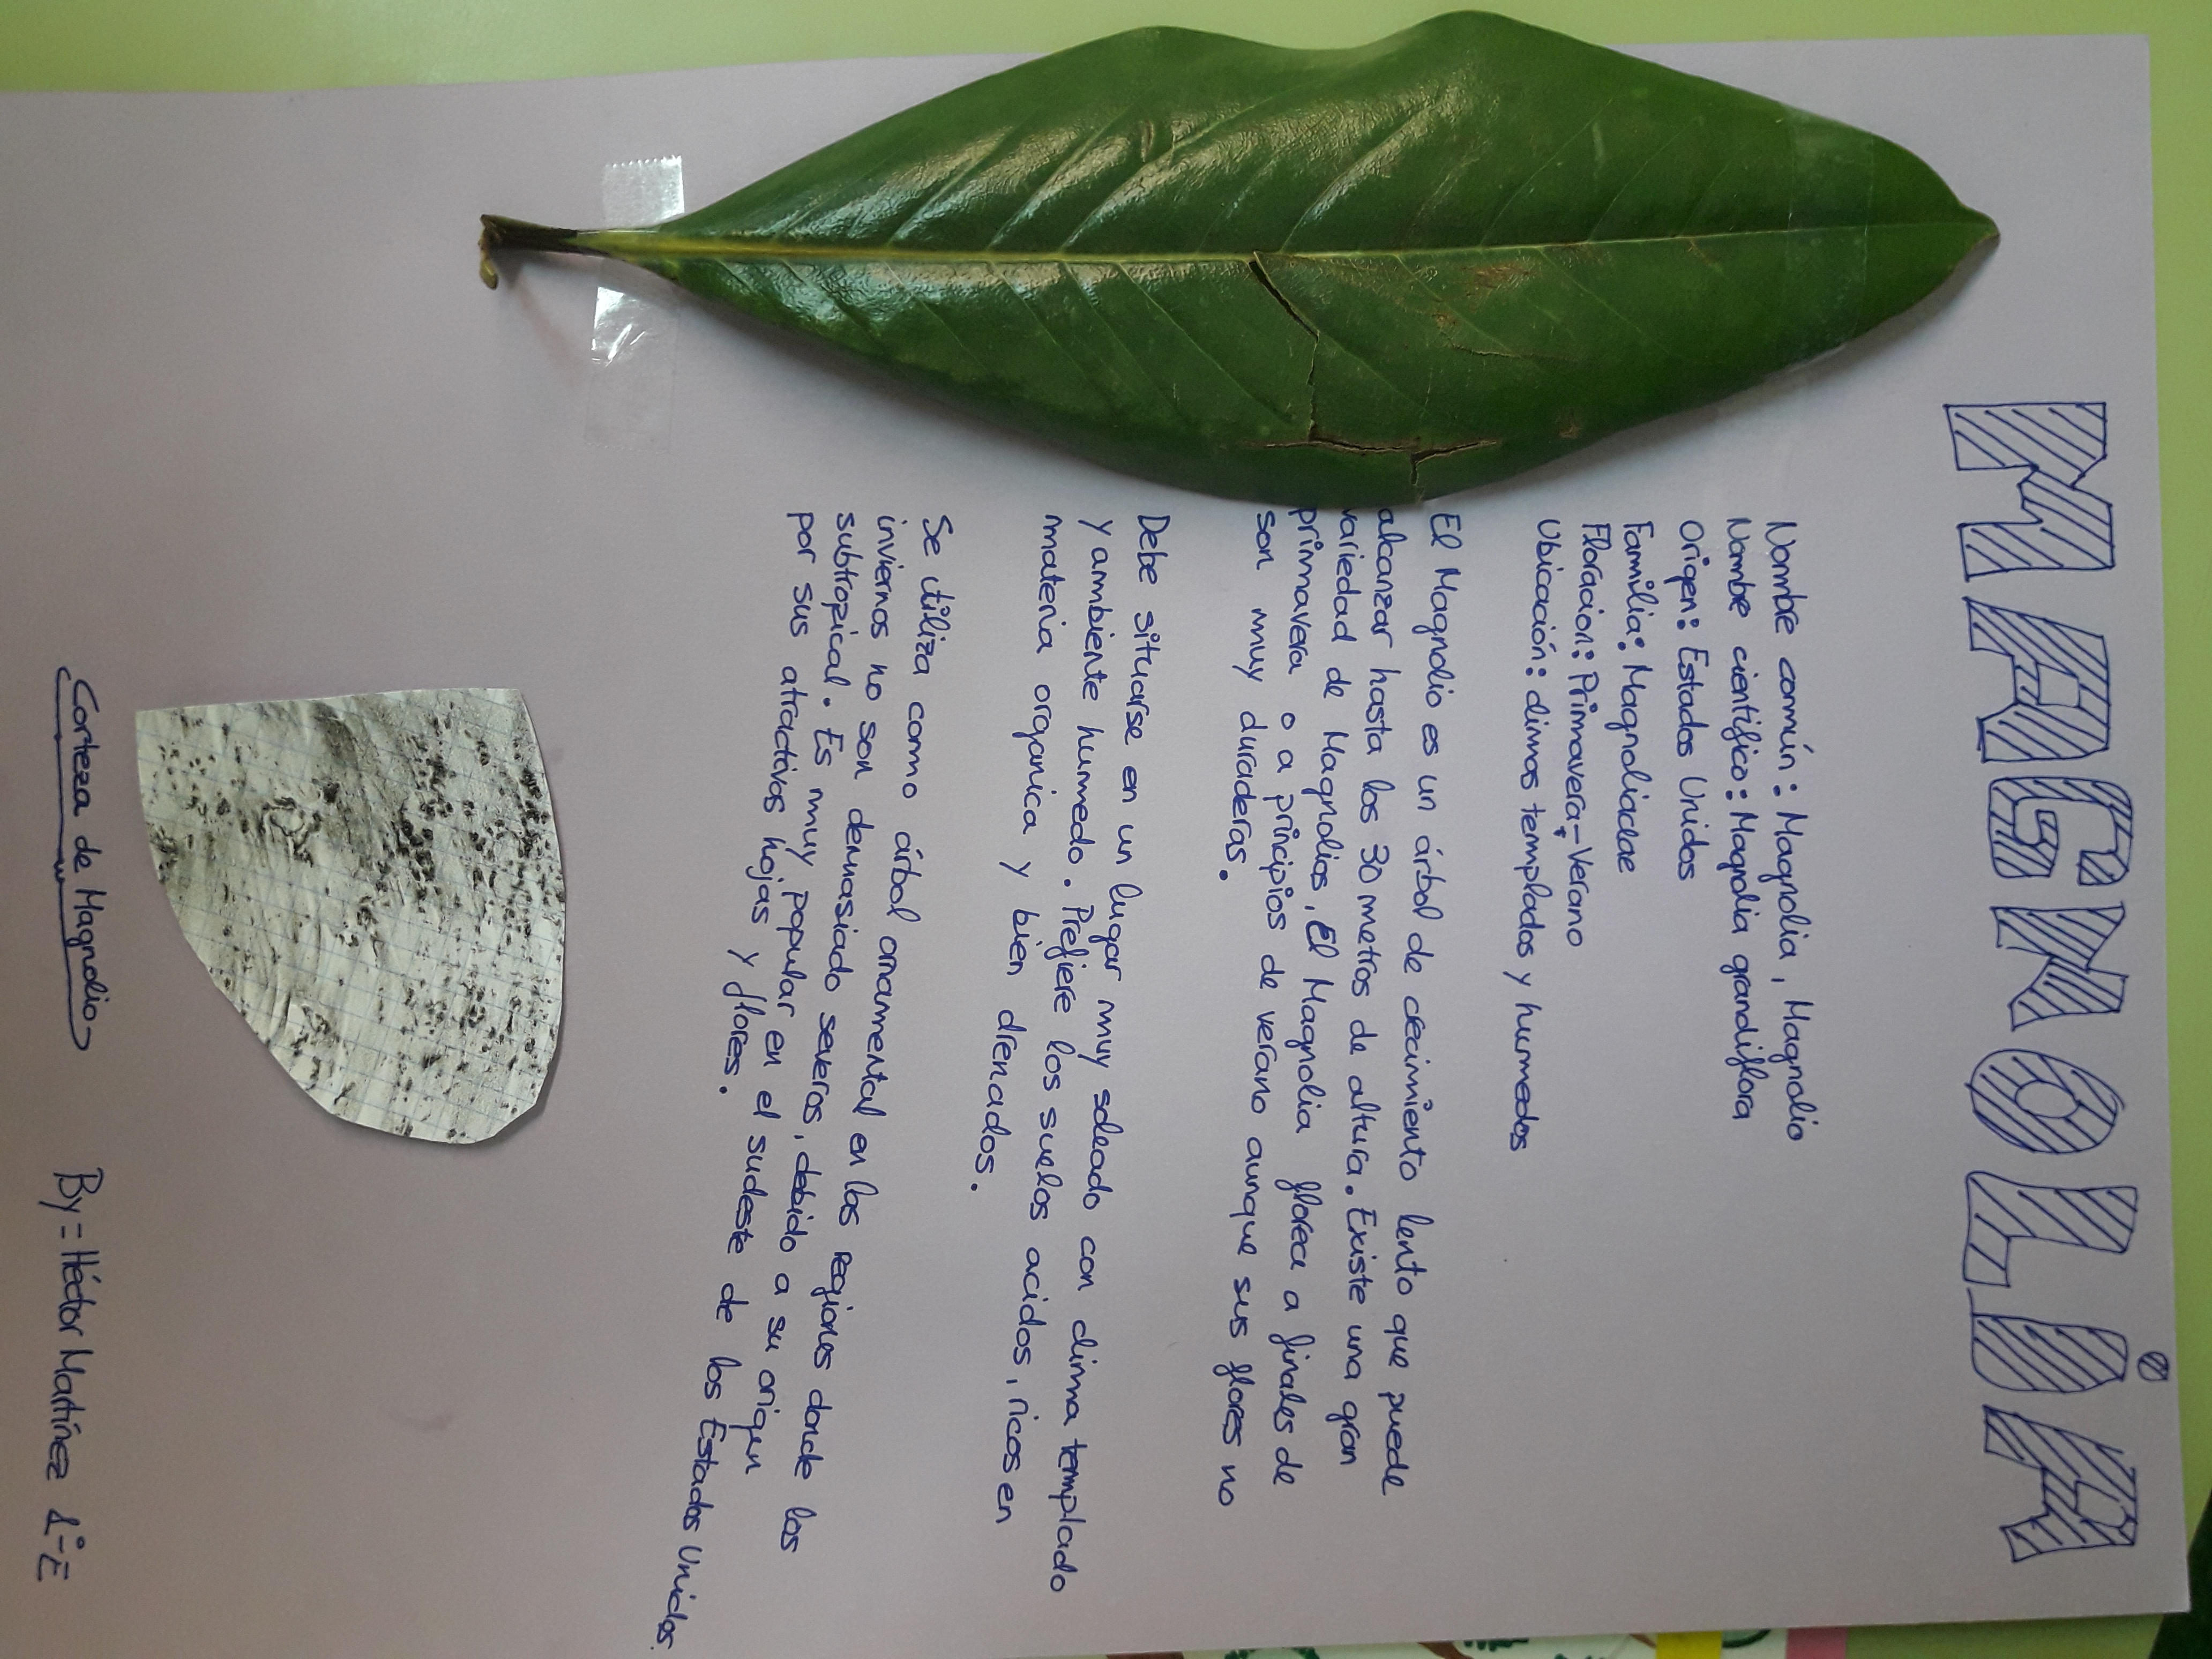 MAGNOLiA
Nombre común: Magnolia, Magnolio
Nombe científico: Magnolia grandiflora
Origen: Estados Unidos
Familia: Magnoliadae
Floracion: Primavera-Verano
Ubicación: climas templados y humedos
El Magnolio es un árbol de crecimiento lento que puede
alcanzar hasta los 30 metros de altura. Existe una gran
variedad de Magnolios, El Magnolia florece a finales de
primavera o a principios de verano aunque sus flores no
son muy duraderas.
Debe situarse en un lugar muy soleado con clima templado
y ambiente humedo. Prefiere los suelos acidos, ricos en
materia organica y bien drenados.
Se utiliza como árbol ornamental en las regiones donde los
inviernos no son demasiado severos, debido a su origen
subtropical. Es muy popular en el sudeste de los Estados Unidos
por sus atractivas hojas y flores.
Corteza de Magnolio
By = Héctor Martínez 1º-E